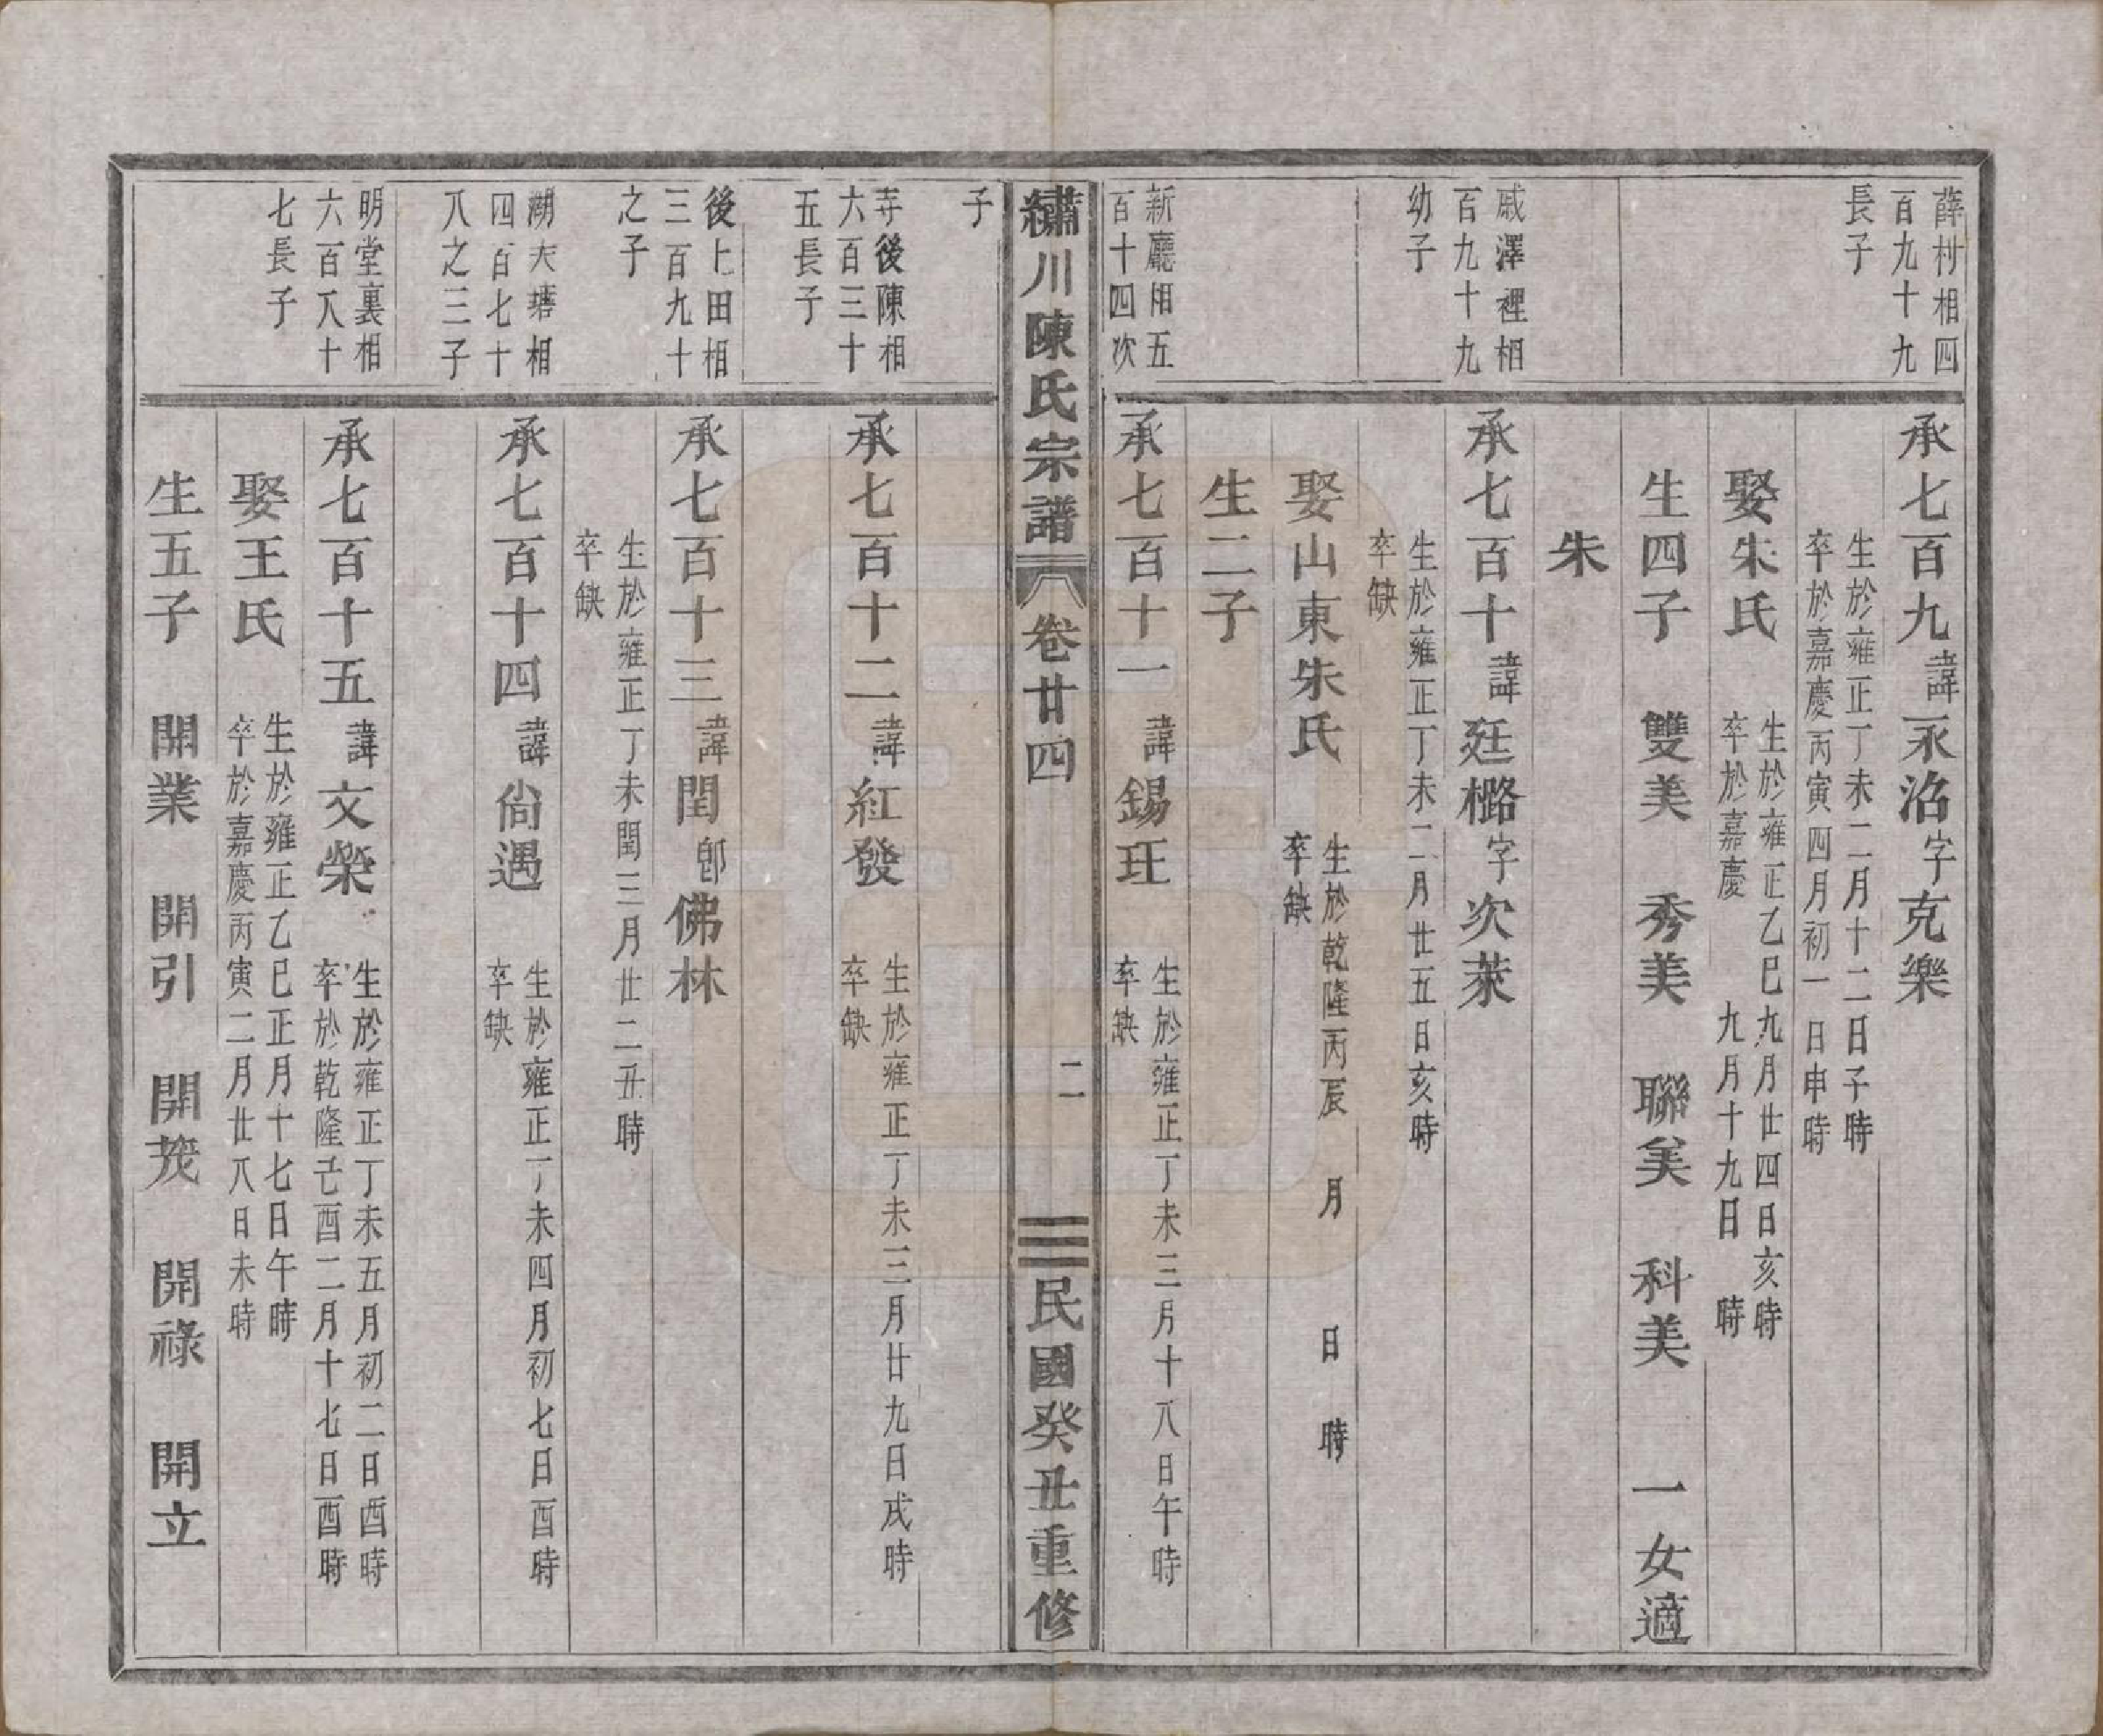 薛村相四
百九十九
長子
承七百九諱永治字克樂
生於雍正丁未二月十二日子時
卒於嘉慶丙寅四月初一日申時
娶朱氏
生於雍正乙巳九月廿四日亥時
卒於嘉慶 九月十九日 時
生四子 雙美 秀美 聯美 科美 一女適
朱
戚澤裡相
百九十九
幼子
承七百十諱廷樒字次萊
生於雍正丁未二月廿五日亥時
卒缺
娶山東朱氏
生於乾隆丙辰 月 日 時
卒缺
生二子
新廳相五
百十四次
承七百十一諱錫玨
生於雍正丁未三月十八日午時
卒缺
繡川陳氏宗譜 卷廿四 二 民國癸丑重修
子
寺後陳相
六百三十
五長子
承七百十二諱紅發
生於雍正丁未三月廿九日戌時
卒缺
後上田相
三百九十
之子
承七百十三諱閏卽佛林
生於雍正丁未閏三月廿二丑時
卒缺
湖大塘相
四百七十
八之三子
承七百十四諱尙遇
生於雍正丁未四月初七日酉時
卒缺
明堂裏相
六百八十
七長子
承七百十五諱文榮
生於雍正丁未五月初二日酉時
卒於乾隆己酉二月十七日酉時
娶王氏
生於雍正乙巳正月十七日午時
卒於嘉慶丙寅二月廿八日未時
生五子 開業 開引 開茂 開祿 開立